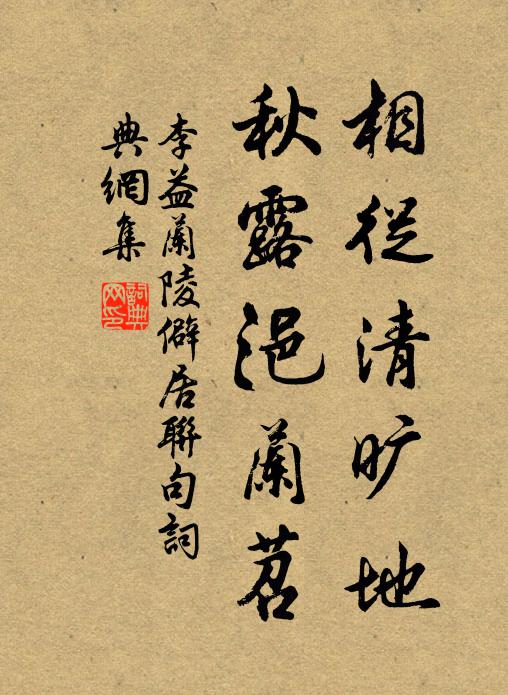 相從清旷地
秋露浥蘭苕
李益蘭陵僻居聯句詞
典網集
詞典
网印